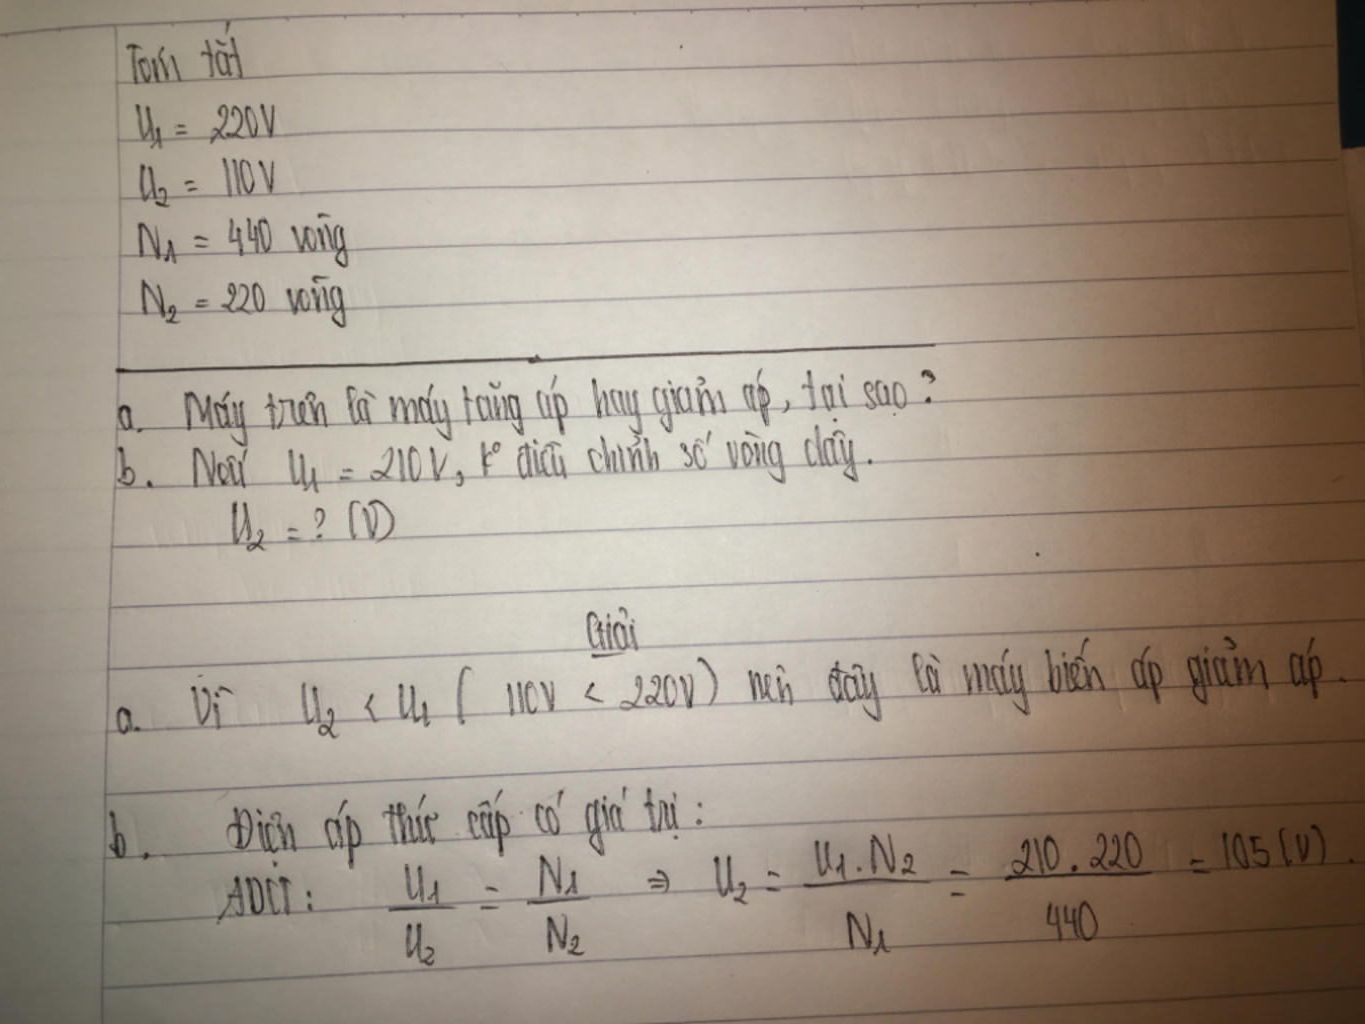 Tóm tắt
U₁ = 220V
U₂ = 110V
N₁ = 440 vòng
N₂ = 220 vòng
a. Máy trên là máy tăng áp hay giảm áp, tại sao?
b. Nếu U₁ = 210V, k° điều chỉnh số vòng dây.
U₂ = ? (V)
Giải
a. Vì U₂ < U₁ ( 110V < 220V) nên đây là máy biến áp giảm áp.
b. Điện áp thức cấp có giá trị:
ADCT: U₁/U₂ = N₁/N₂ ⇒ U₂ = U₁.N₂/N₁ = 210.220/440 = 105 (V).